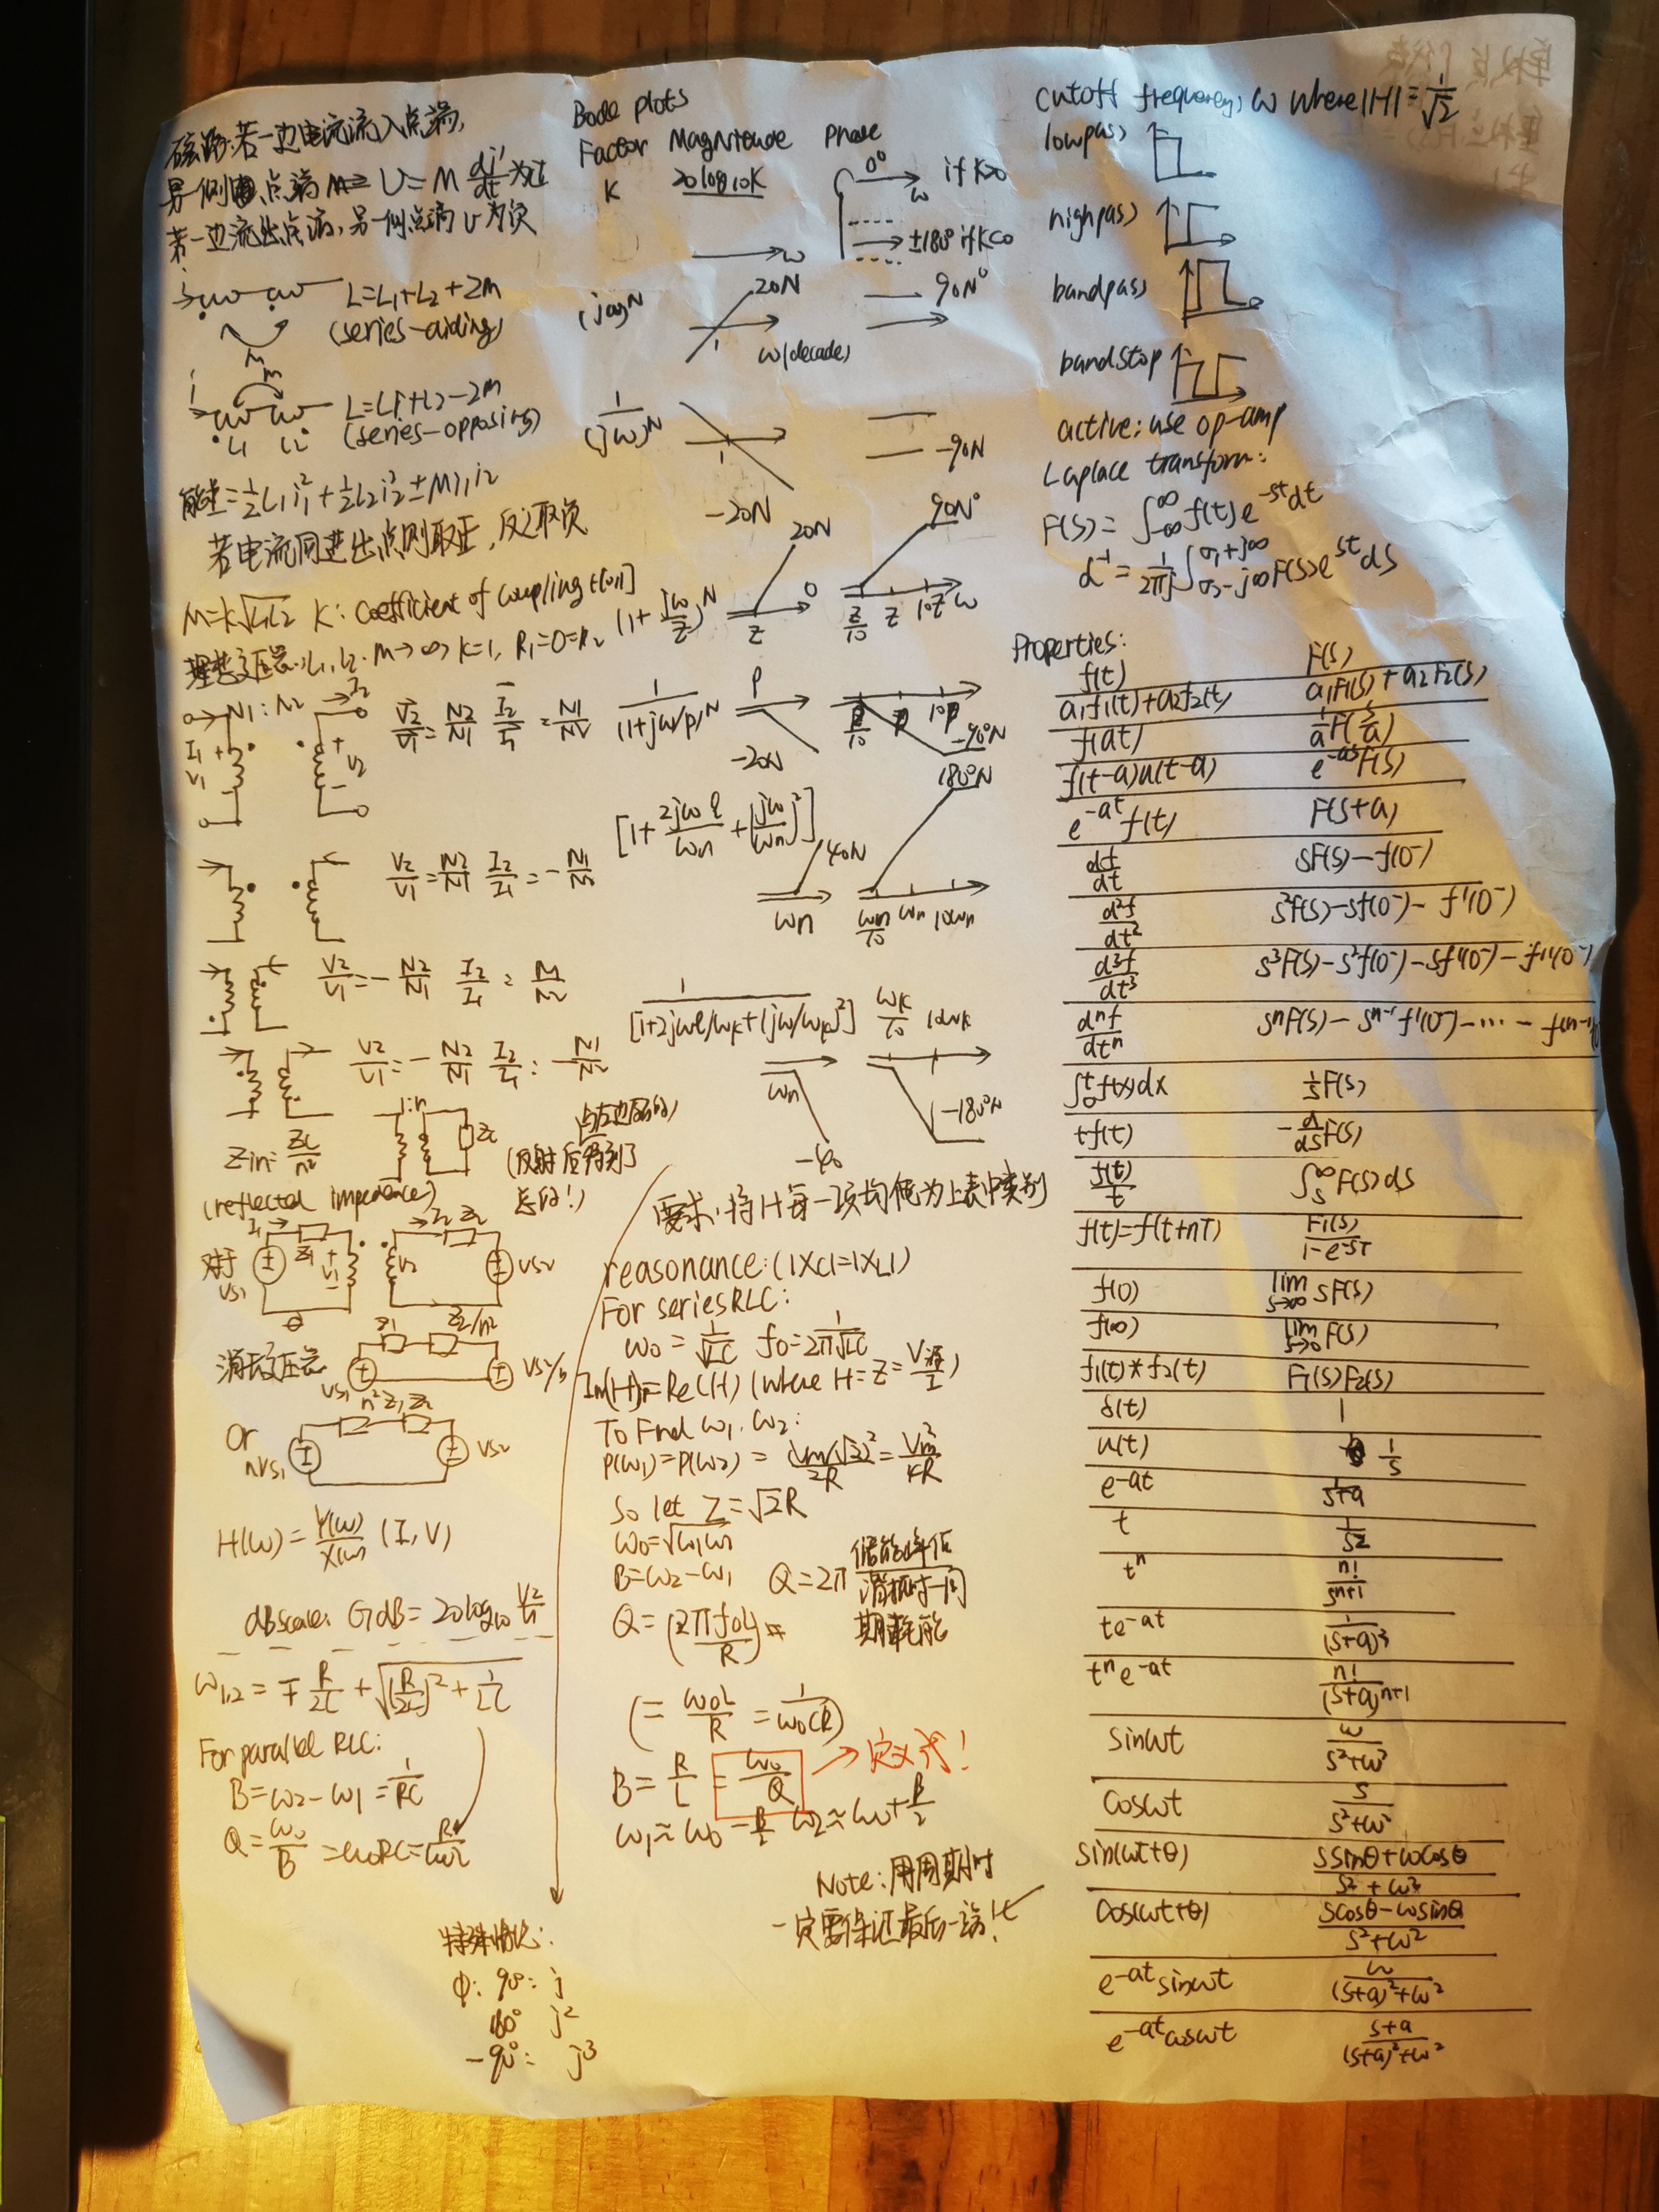 磁路:若一边电流流入点端,
另一侧点端 U=M di/dt 为正
若一边流出点端,另一侧点端U为负
i
L=L1+L2+2M
(series-aiding)
M
i
M
L1 L2
L=L1+L2-2M
(series-opposing)
能量=½L1i1²+½L2i2²±Mi1i2
若电流同进出点则取正,反之取负
M=k√L1L2 K: coefficient of coupling
理想变压器:L1,L2,M→∞, K=1, R1=0=R2
N1:N2 I2
I1 V1 + V2 -
V2/V1=N2/N1 I2/I1=N1/N2
V2/V1=N2/N1 I2/I1=-N1/N2
V2/V1=-N2/N1 I2/I1=N1/N2
V2/V1=-N2/N1 I2/I1=-N1/N2
Zin=ZL/n² 1:n ZL
(reflected impedance)
对于 VS1 I1 Z1 + V1 - V2 I2 Z2 VS2
消去变压器 VS1 Z1 Z2/n² VS2/n
Or nVS1 n²Z1 Z2 VS2
H(ω)=Y(ω)/X(ω) (I, V)
dB scale: GdB=20log10 V2/V1
ω1,2=∓R/2L+√((R/2L)²+1/LC)
For parallel RLC:
B=ω2-ω1=1/RC
Q=ω0/B=ω0RC=R/ω0L
特殊情况:
φ: 90°: j
180° j²
-90°: j³
Bode plots
Factor Magnitude Phase
K 20log10K 0° if K>0
ω
±180° if K<0
ω
(jω)^N 20N 90N°
1 ω(decade)
1/(jω)^N 1 -20N -90N
(1+jω/z)^N 20N z 90N° z/10 z 10z ω
1/(1+jω/p)^N p -20N p/10 p 10p -90°N
[1+2jωζ/ωn+(jω/ωn)²] 40N 180°N
ωn ωn/10 ωn 10ωn
1/[1+2jωζ/ωk+(jω/ωk)²] ωk/10 10ωk
ωn -40 -180°N
要求:将H每一项均化为上表中类别
reasonance:(|XC|=|XL|)
For series RLC:
ω0=1/√LC f0=1/2π√LC
Im(H)=Re(H) (where H=Z=V/I)
To Find ω1, ω2:
P(ω1)=P(ω2)=(Vm/√2)²/2R=Vm²/4R
So let Z=√2R
ω0=√ω1ω2
B=ω2-ω1 Q=2π 储能峰值/谐振时一周期耗能
Q=(2πf0L/R)
(=ω0L/R=1/ω0CR)
B=R/L=ω0/Q →定义式!
ω1≈ω0-B/2 ω2≈ω0+B/2
Note:用周期时
一定要保证最后一端!
cutoff frequency, ω where |H|=1/√2
lowpass
highpass
bandpass
bandstop
active: use op-amp
Laplace transform:
F(s)=∫-∞^∞ f(t)e^-st dt
L^-1=1/2πj ∫σ1-j∞^σ1+j∞ F(s)e^st ds
Properties:
f(t) F(s)
a1f1(t)+a2f2(t) a1F1(s)+a2F2(s)
f(at) 1/a F(s/a)
f(t-a)u(t-a) e^-as F(s)
e^-at f(t) F(s+a)
df/dt sF(s)-f(0⁻)
d²f/dt² s²F(s)-sf(0⁻)-f'(0⁻)
d³f/dt³ s³F(s)-s²f(0⁻)-sf'(0⁻)-f''(0⁻)
dⁿf/dtⁿ sⁿF(s)-s^n-1 f'(0⁻)-⋯-
∫0^t f(x)dx 1/s F(s)
tf(t) -d/ds F(s)
f(t)/t ∫s^∞ F(s)ds
f(t)=f(t+nT) F1(s)/1-e^-sT
f(0) lim s→∞ sF(s)
f(∞) lim s→0 F(s)
f1(t)*f2(t) F1(s)F2(s)
δ(t) 1
u(t) 1/s
e^-at 1/s+a
t 1/s²
tⁿ n!/s^n+1
te^-at 1/(s+a)²
tⁿe^-at n!/(s+a)^n+1
sinωt ω/s²+ω²
cosωt s/s²+ω²
sin(ωt+θ) ssinθ+ωcosθ/s²+ω²
cos(ωt+θ) scosθ-ωsinθ/s²+ω²
e^-at sinωt ω/(s+a)²+ω²
e^-at cosωt s+a/(s+a)²+ω²